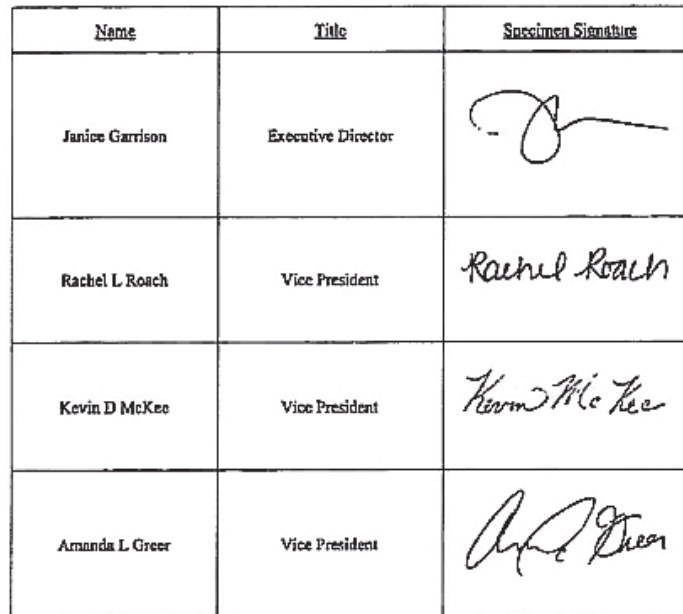 Name Title Specimen Signature
Janice Garrison Executive Director
Rachel L Roach Vice President Rachel Roach
Kevin D McKee Vice President Kevin McKee
Amanda L Greer Vice President Greer